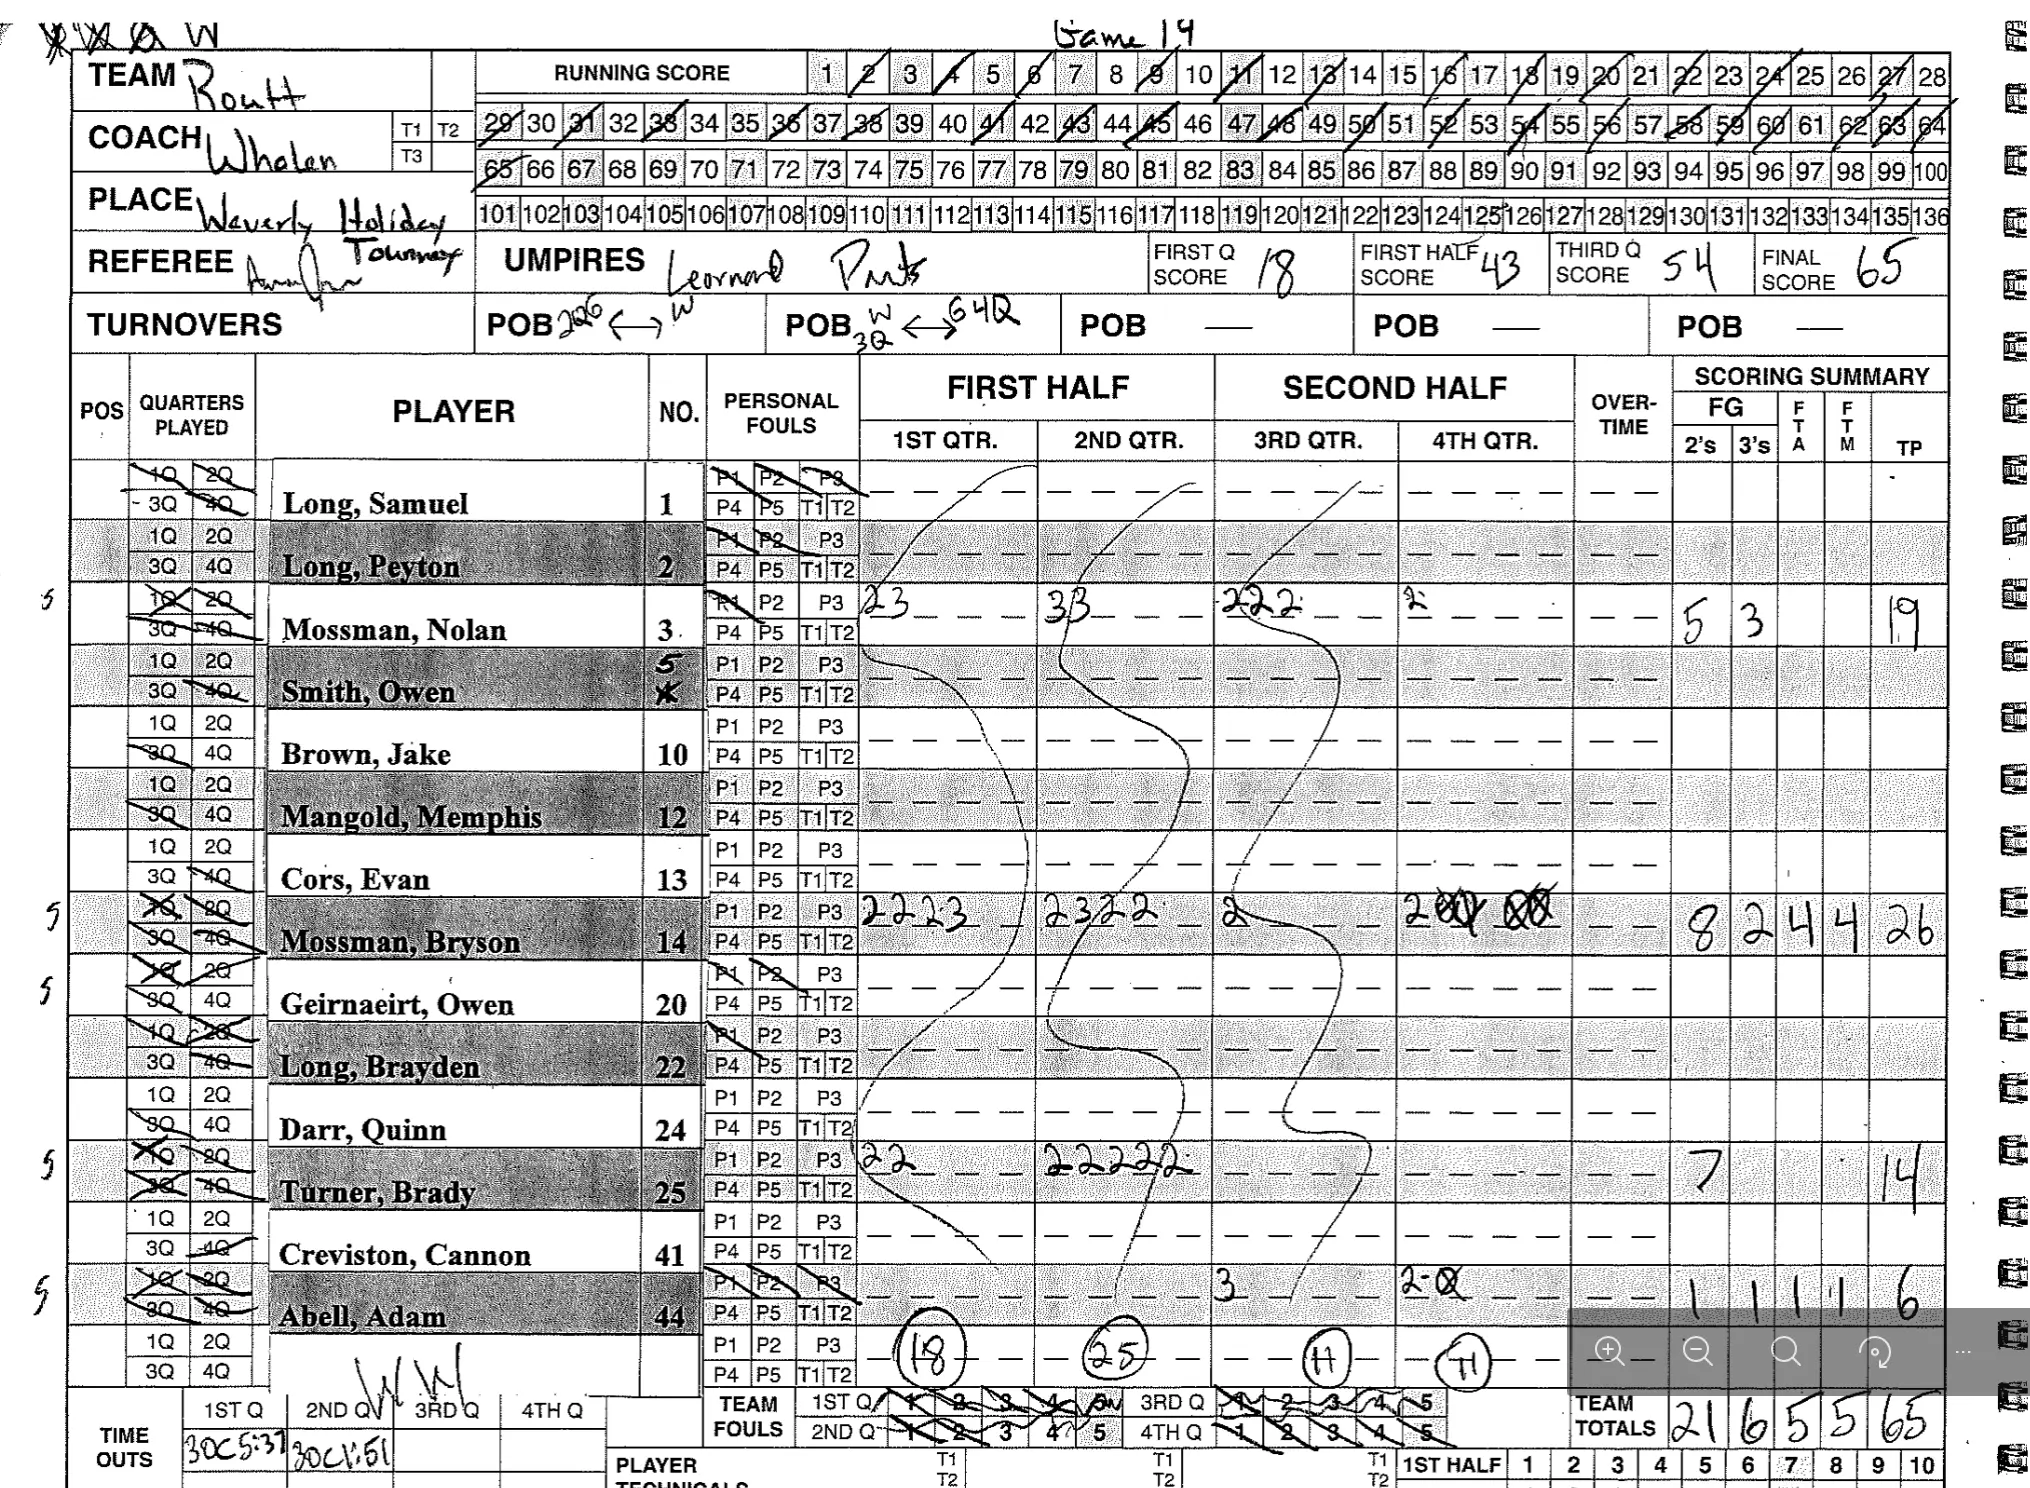 W Game 14
TEAM Routt RUNNING SCORE 1 2 3 4 5 6 7 8 9 10 11 12 13 14 15 16 17 18 19 20 21 22 23 24 25 26 27 28
COACH Whalen T1 T2 29 30 31 32 33 34 35 36 37 38 39 40 41 42 43 44 45 46 47 48 49 50 51 52 53 54 55 56 57 58 59 60 61 62 63 64
T3 65 66 67 68 69 70 71 72 73 74 75 76 77 78 79 80 81 82 83 84 85 86 87 88 89 90 91 92 93 94 95 96 97 98 99 100
PLACE Waverly Holiday Tourney 101 102 103 104 105 106 107 108 109 110 111 112 113 114 115 116 117 118 119 120 121 122 123 124 125 126 127 128 129 130 131 132 133 134 135 136
REFEREE UMPIRES Leornard FIRST Q SCORE 18 FIRST HALF SCORE 43 THIRD Q SCORE 54 FINAL SCORE 65
TURNOVERS POB 2Q6 ↔ W POB W 3Q ↔ G4Q POB — POB — POB —
POS QUARTERS PLAYED PLAYER NO. PERSONAL FOULS FIRST HALF SECOND HALF OVER-TIME SCORING SUMMARY
1ST QTR. 2ND QTR. 3RD QTR. 4TH QTR. FG 2's 3's FTA FTM TP
1Q 2Q P1 P2 P3
3Q 4Q Long, Samuel 1 P4 P5 T1 T2
1Q 2Q P1 P2 P3
3Q 4Q Long, Peyton 2 P4 P5 T1 T2
5 1Q 2Q P1 P2 P3 23 33 222 2
3Q 4Q Mossman, Nolan 3 P4 P5 T1 T2 5 3 19
1Q 2Q 5 P1 P2 P3
3Q 4Q Smith, Owen P4 P5 T1 T2
1Q 2Q P1 P2 P3
3Q 4Q Brown, Jake 10 P4 P5 T1 T2
1Q 2Q P1 P2 P3
3Q 4Q Mangold, Memphis 12 P4 P5 T1 T2
1Q 2Q P1 P2 P3
3Q 4Q Cors, Evan 13 P4 P5 T1 T2
5 1Q 2Q P1 P2 P3 2223 2322 2 2
3Q 4Q Mossman, Bryson 14 P4 P5 T1 T2 8 2 4 4 26
5 1Q 2Q P1 P2 P3
3Q 4Q Geirnaeirt, Owen 20 P4 P5 T1 T2
1Q 2Q P1 P2 P3
3Q 4Q Long, Brayden 22 P4 P5 T1 T2
1Q 2Q P1 P2 P3
3Q 4Q Darr, Quinn 24 P4 P5 T1 T2
5 1Q 2Q P1 P2 P3 22 22222
3Q 4Q Turner, Brady 25 P4 P5 T1 T2 7 14
1Q 2Q P1 P2 P3
3Q 4Q Creviston, Cannon 41 P4 P5 T1 T2
5 1Q 2Q P1 P2 P3 3 2-
3Q 4Q Abell, Adam 44 P4 P5 T1 T2 1 1 1 1 6
1Q 2Q P1 P2 P3 18 25 11 11
3Q 4Q W W P4 P5 T1 T2
TIME OUTS 1ST Q 2ND Q 3RD Q 4TH Q TEAM FOULS 1ST Q 1 2 3 4 3RD Q 1 2 3 4 5 TEAM TOTALS 21 6 5 5 65
30C 5:37 30C 1:51 2ND Q 1 2 3 4 5 4TH Q 1 2 3 4 5
PLAYER TECHNICALS T1 T1 T1 1ST HALF 1 2 3 4 5 6 7 8 9 10
T2 T2 T2